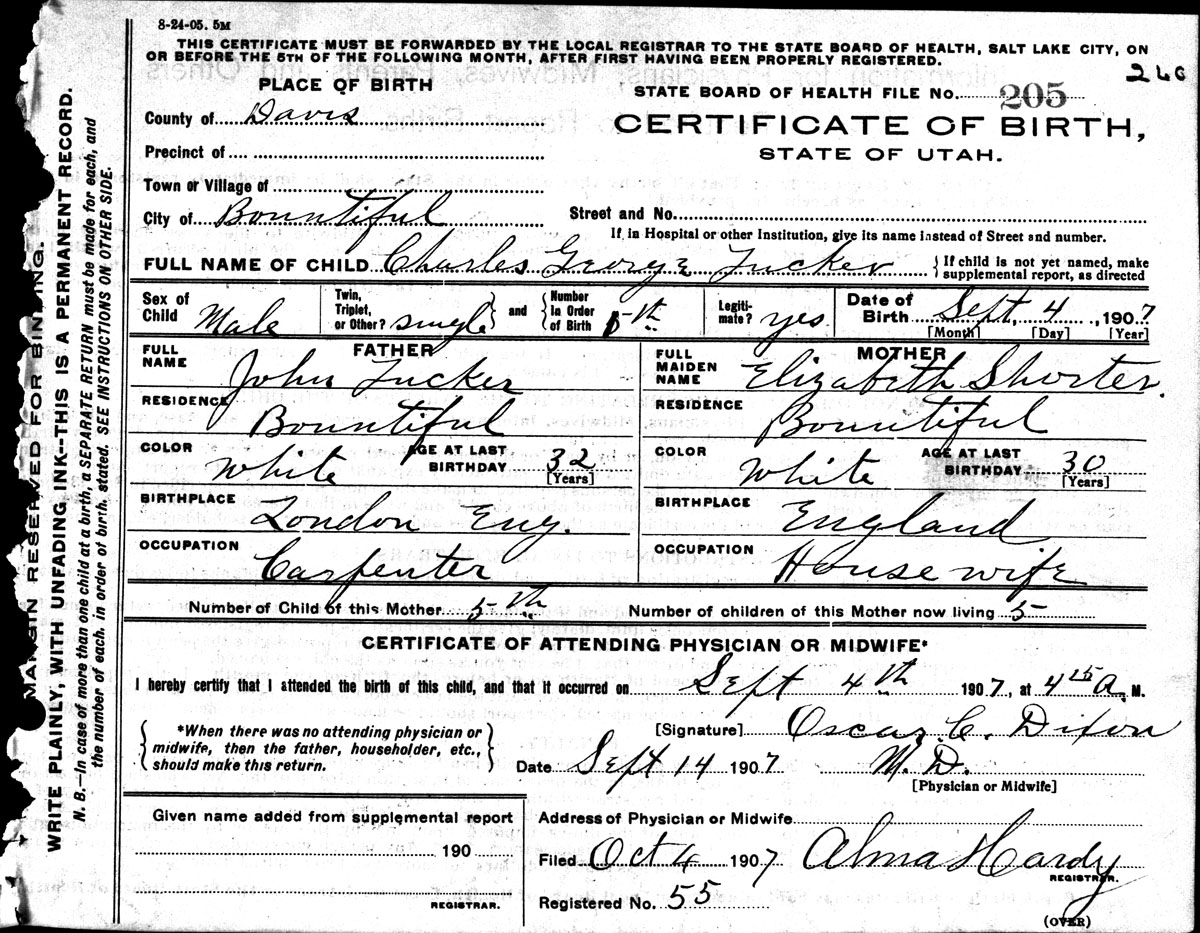 8-24-05. 5M
THIS CERTIFICATE MUST BE FORWARDED BY THE LOCAL REGISTRAR TO THE STATE BOARD OF HEALTH, SALT LAKE CITY, ON
OR BEFORE THE 5TH OF THE FOLLOWING MONTH, AFTER FIRST HAVING BEEN PROPERLY REGISTERED.
PLACE OF BIRTH
STATE BOARD OF HEALTH FILE NO. 205
County of Davis
CERTIFICATE OF BIRTH,
STATE OF UTAH.
Precinct of
Town or Village of
City of Bountiful
Street and No.
If in Hospital or other Institution, give its name instead of Street and number.
FULL NAME OF CHILD Charles George Tucker
If child is not yet named, make
supplemental report, as directed
Sex of Child Male
Twin, Triplet, or Other? single
and
Number In Order of Birth 5th
Legiti-mate? yes
Date of Birth Sept. 4, 1907
[Month] [Day] [Year]
FATHER
FULL NAME John Tucker
RESIDENCE Bountiful
COLOR White
AGE AT LAST BIRTHDAY 32
[Years]
BIRTHPLACE London Eng.
OCCUPATION Carpenter
MOTHER
FULL MAIDEN NAME Elizabeth Shorter.
RESIDENCE Bountiful
COLOR White
AGE AT LAST BIRTHDAY 30
[Years]
BIRTHPLACE England
OCCUPATION Housewife
Number of Child of this Mother 5th
Number of children of this Mother now living 5
CERTIFICATE OF ATTENDING PHYSICIAN OR MIDWIFE*
I hereby certify that I attended the birth of this child, and that it occurred on Sept 4th 1907, at 4 15 A. M.
*When there was no attending physician or
midwife, then the father, householder, etc.,
should make this return.
[Signature] Oscar C. Dixon
Date Sept 14 1907 M. D.
[Physician or Midwife]
Given name added from supplemental report
190
REGISTRAR.
Address of Physician or Midwife
Filed Oct 4 1907 Alma Hardy
REGISTRAR.
Registered No. 55
(OVER)
MARGIN RESERVED FOR BINDING.
WRITE PLAINLY, WITH UNFADING INK--THIS IS A PERMANENT RECORD.
N. B.--In case of more than one child at a birth, a SEPARATE RETURN must be made for each, and
the number of each, in order of birth, stated. SEE INSTRUCTIONS ON OTHER SIDE.